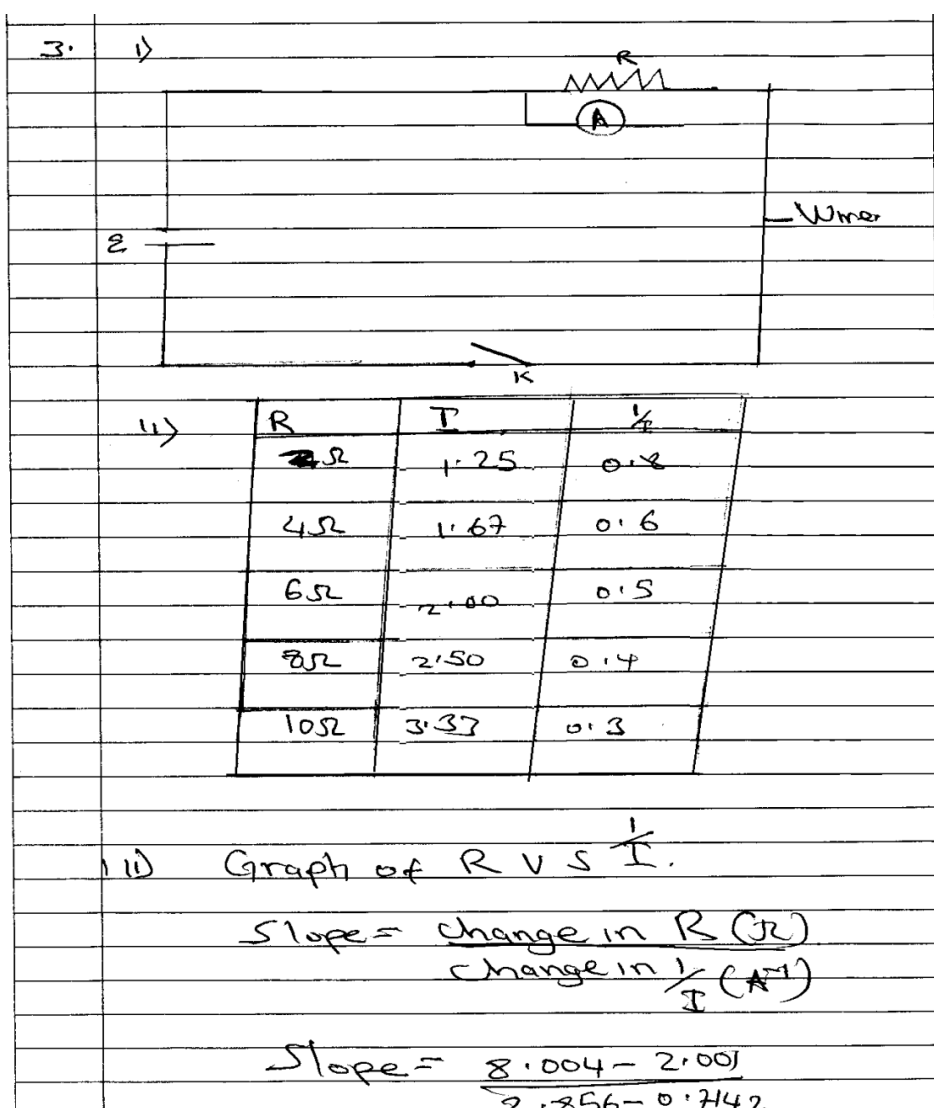 3. i)
R
A
Wmer
ε
K
ii) R I 1/I
2Ω 1.25 0.8
4Ω 1.67 0.6
6Ω 2.00 0.5
8Ω 2.50 0.4
10Ω 3.33 0.3
iii) Graph of R VS 1/I.
Slope = change in R (Ω)
change in 1/I (A⁻¹)
Slope = 8.004 - 2.001